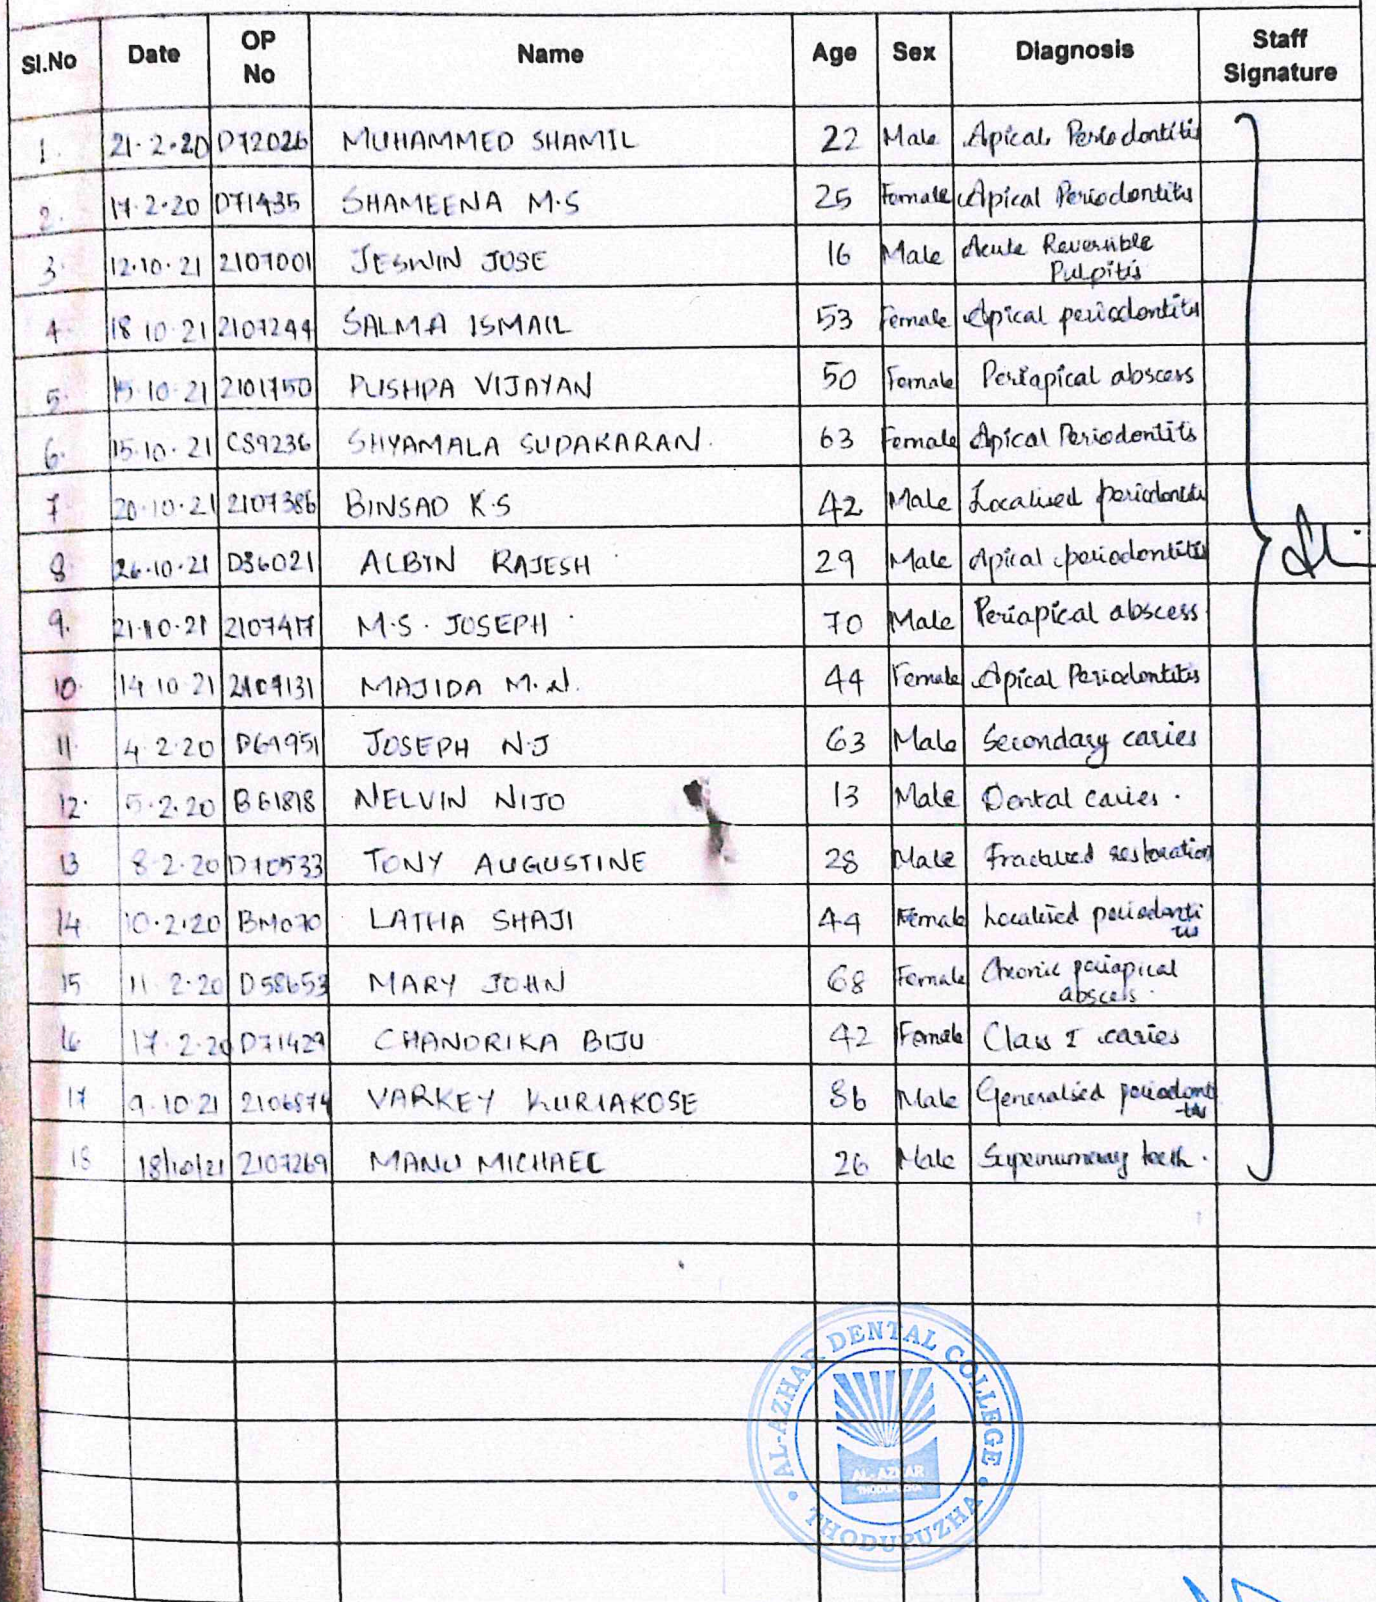 Sl.No Date OP No Name Age Sex Diagnosis Staff Signature
1. 21.2.20 D72026 MUHAMMED SHAMIL 22 Male Apical Periodontitis
2. 17.2.20 D71435 SHAMEENA M.S 25 Female Apical Periodontitis
3. 12.10.21 2107001 JESWIN JOSE 16 Male Acute Reversible
Pulpitis
4. 18 10.21 2107244 SALMA ISMAIL 53 Female Apical periodontitis
5. 15.10.21 2101750 PUSHPA VIJAYAN 50 Female Periapical abscess
6. 15.10.21 C89236 SHYAMALA SUDAKARAN. 63 Female Apical Periodontitis
7 20.10.21 2107386 BINSAD K.S 42 Male Localised periodontitis
8 26.10.21 D36021 ALBIN RAJESH 29 Male Apical periodontitis
9. 21.10.21 2107417 M.S. JOSEPH 70 Male Periapical abscess.
10. 14 10.21 2107131 MAJIDA M.N. 44 Female Apical Periodontitis
11. 4.2.20 D69951 JOSEPH N.J 63 Male Secondary caries
12. 5.2.20 B61818 NELVIN NIJO 13 Male Dental caries.
13 8.2.20 D70533 TONY AUGUSTINE 28 Male Fractured restoration
14. 10.2.20 LATHA SHAJI 44 Female Localised periodonti
tis
15 11.2.20 D58653 MARY JOHN 68 Female Chronic periapical
abscess.
16 17.2.20 D71429 CHANDRIKA BIJU 42 Female Class I caries
17 9.10.21 2106874 VARKEY KURIAKOSE 86 Male Generalised periodonti
-tis
18 18/10/21 2107269 MANU MICHAEL 26 Male Supernumerary teeth.
AL-AZHAR DENTAL COLLEGE
AL-AZHAR
THODUPUZHA
THODUPUZHA